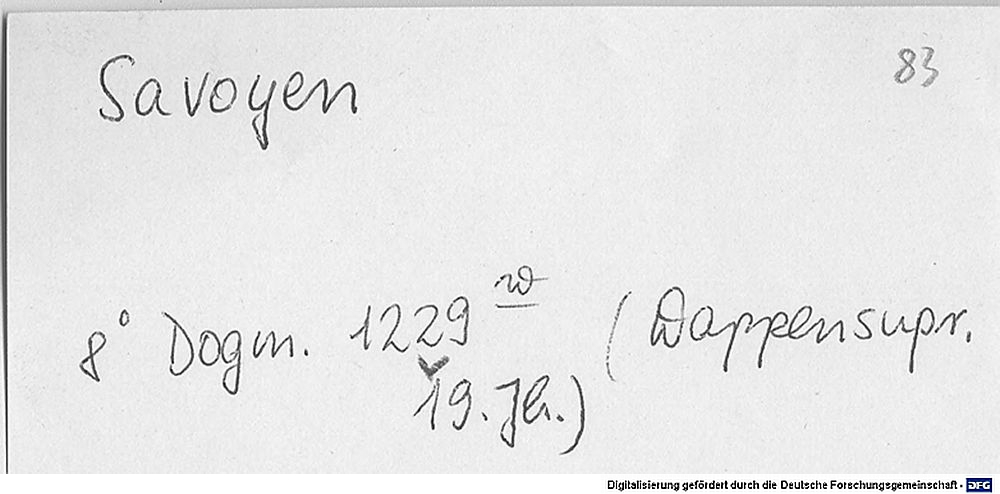 Savoyen
83
8° Dogm. 1229 w (Wappensupr.
19. Jh.)
Digitalisierung gefördert durch die Deutsche Forschungsgemeinschaft - DFG